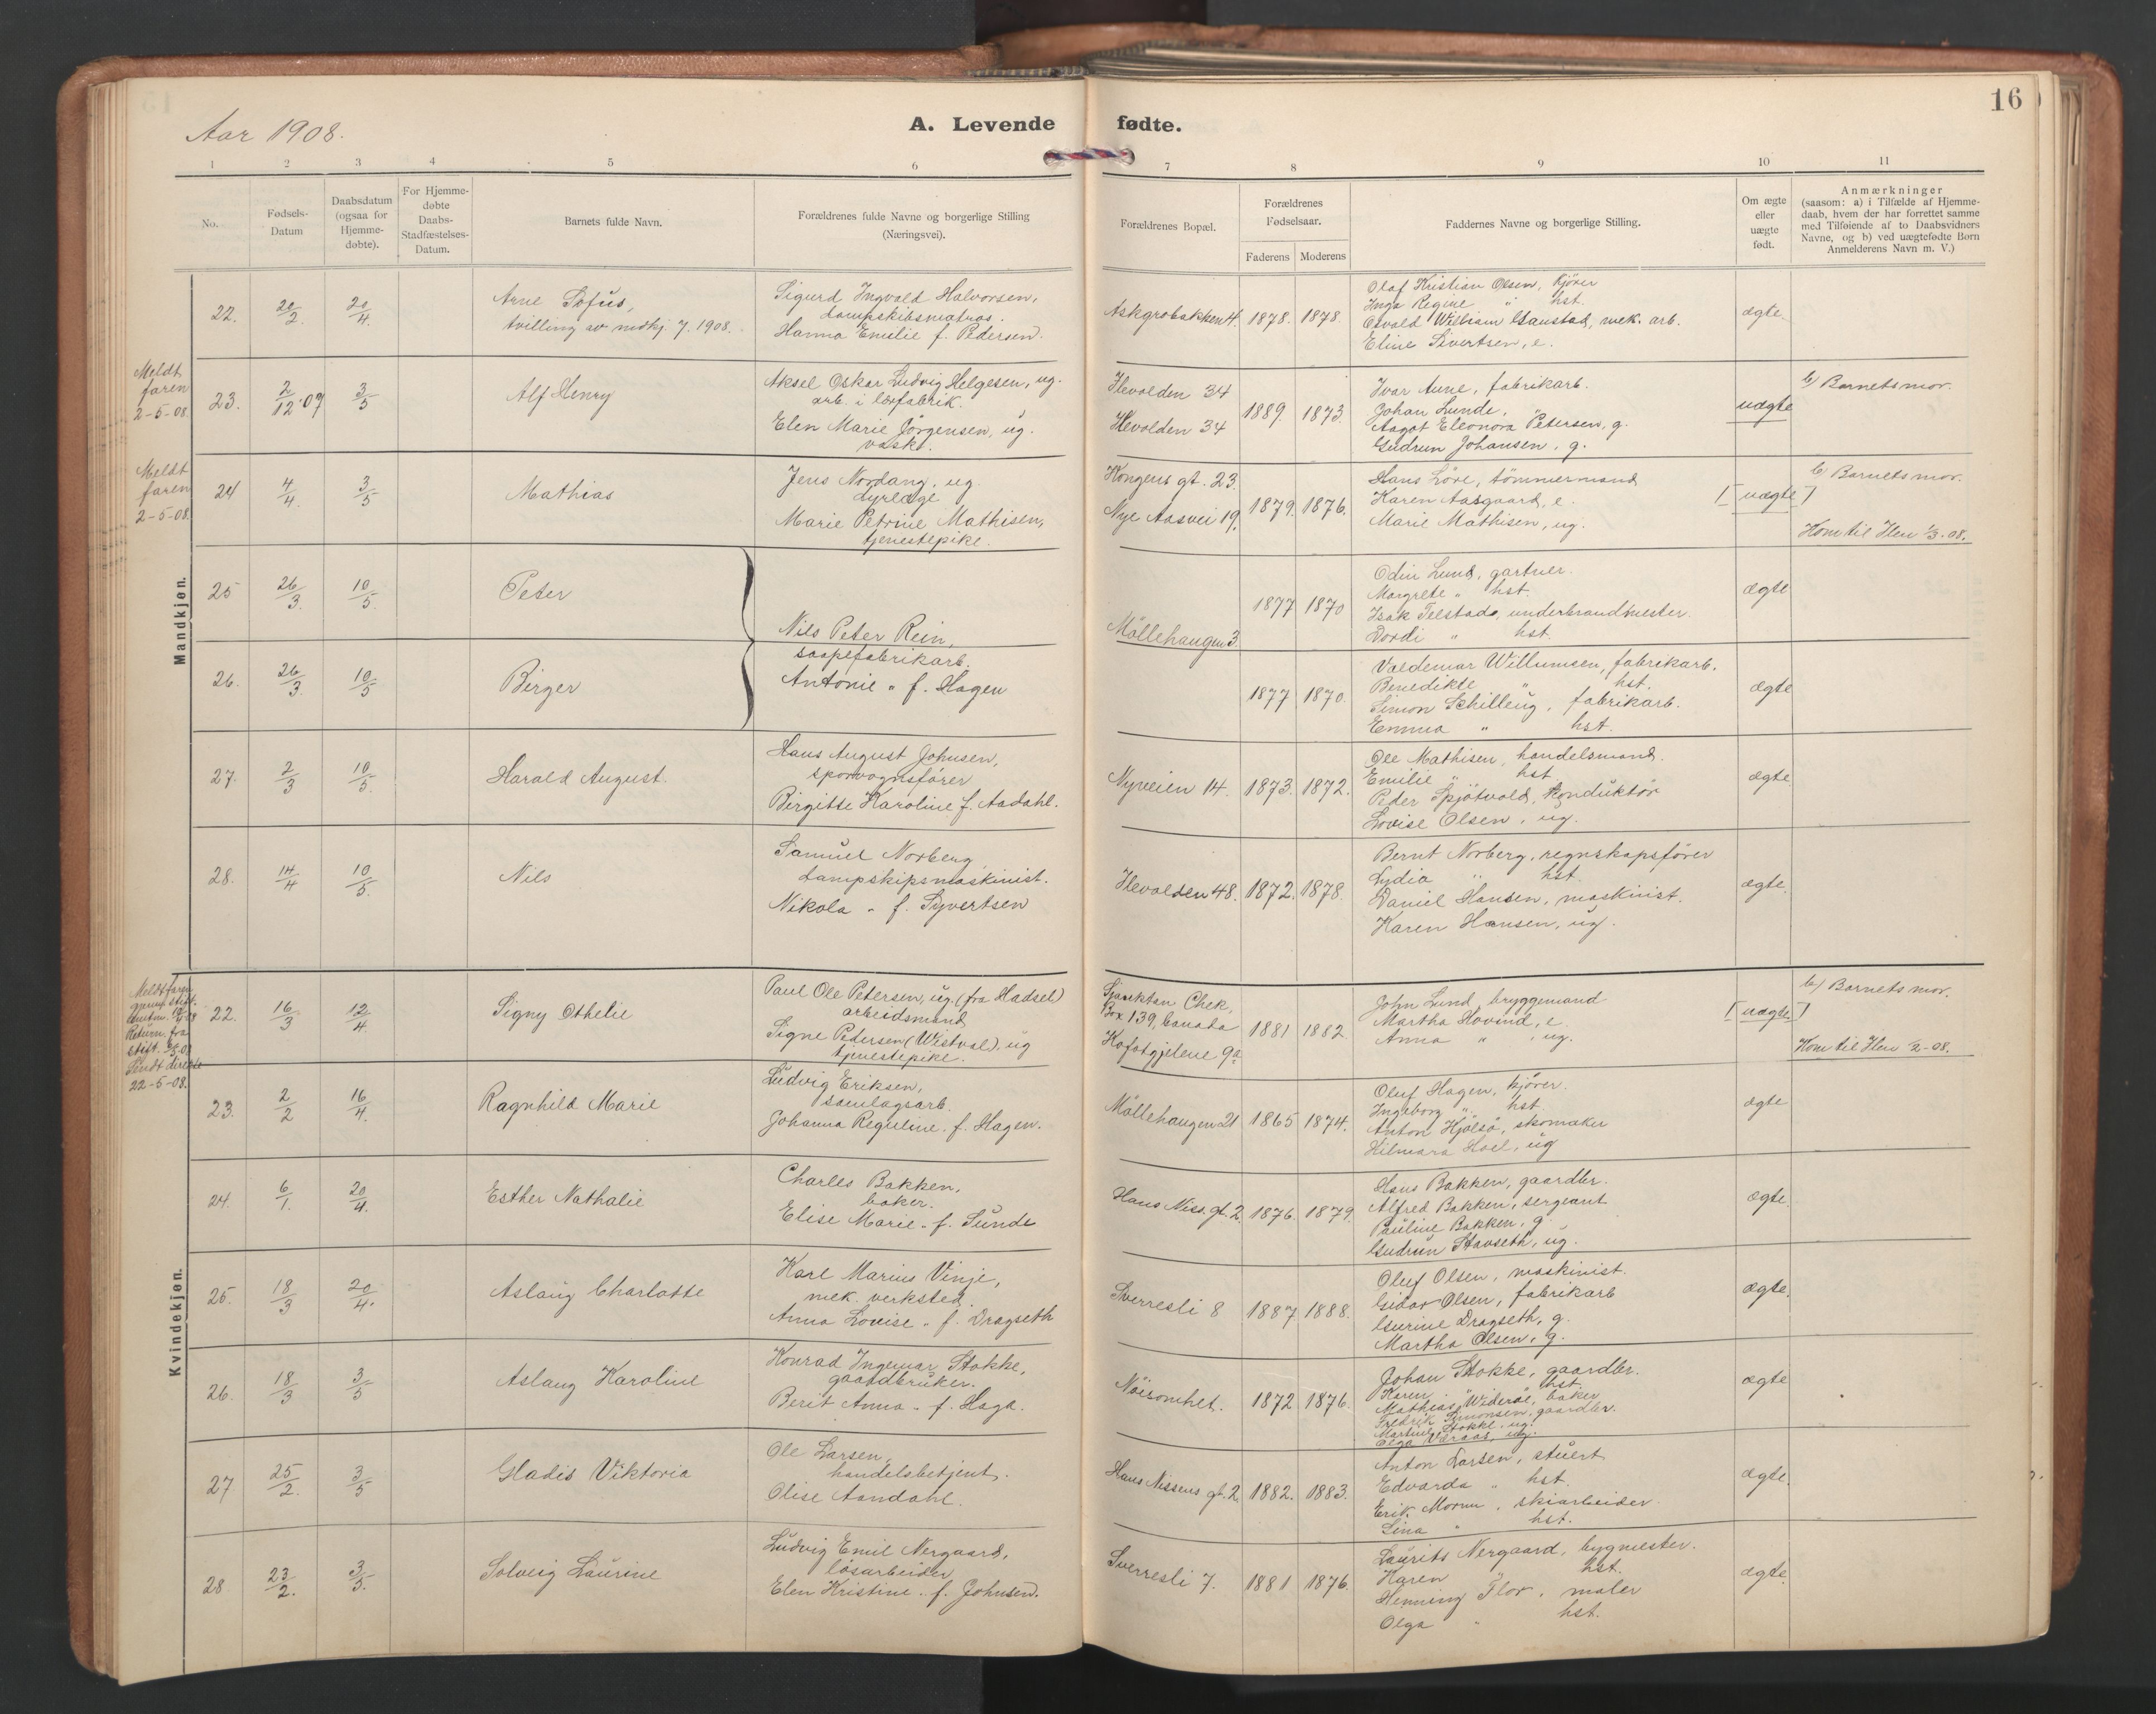 16
Aar 1908.
A. Levende fødte.
1 2 3 4 5 6 7 8 9 10 11
No.
Fødsels-
Datum
Daabsdatum
(ogsaa for
Hjemme-
døbte).
For Hjemme-
døbte
Daabs-
Stadfæstelses-
Datum.
Barnets fulde Navn.
Forældrenes fulde Navne og borgerlige Stilling
(Næringsvei).
Forældrenes Bopæl.
Forældrenes
Fødselsaar.
Faderens Moderens
Faddernes Navne og borgerlige Stilling.
Om ægte
eller
uægte
født.
Anmærkninger
(saasom: a) i Tilfælde af Hjemme-
daab, hvem der har forrettet samme
med Tilføiende af to Daabsvidners
Navne, og b) ved uægtefødte Børn
Anmelderens Navn m. V.)
Mandkjøn.
22. 20/2. 20/4.
Arne Sofus,
tvilling av mdkj. 7. 1908.
Sigurd Ingvald Halvorsen,
dampskibsmatros.
Hanna Emilie f. Pedersen.
Askgrobakken 4. 1878. 1878.
Olaf Kristian Olsen, kjörer
Inga Regine " hst.
Osvald William Gaustad, mek. arb.
Eline Sivertsen, e.
ægte.
Meldt
faren
2-5-08.
23. 2/12·07 3/5
Alf Henry
Aksel Oskar Ludvig Helgesen, ug.
arb. i lærfabrik.
Elen Marie Jörgensen, ug.
vask.
Ilevolden 34
Ilevolden 34
1889. 1873.
Ivar Aune, fabrikarb.
Johan Lunde, "
Aagot Eleonora Petersen, g.
Gudrun Johansen, g.
uægte
b) Barnets mor.
Meldt
faren
2-5-08.
24 4/4. 3/5
Mathias
Jens Nordang, ug.
dyrlæge
Marie Petrine Mathisen,
tjenestepike.
Kongens gt. 23.
Nye Aasvei 19.
1879. 1876.
Hans Löre, tömmermand
Karen Aasgaard, e.
Marie Mathisen, ug.
[uægte]
b) Barnets mor.
Kom til Ilen 1/3-08.
25 26/3. 10/5.
Peter
Nils Peter Rein,
saapefabrikarb.
Antonie " f. Hagen
Möllehaugen 3.
1877 1870
Odin Lund, gartner.
Margrete " hst.
Isak Telstad, underbrandmester.
Dordi " hst.
ægte
26. 26/3. 10/5
Birger
1877 1870.
Valdemar Willumsen, fabrikarb.
Benedikte " hst.
Simon Schilling, fabrikarb.
Emma " hst.
ægte
27. 2/3 10/5.
Harald August.
Hans August Johnsen,
sporvognsförer
Birgitte Karoline f. Aadahl.
Nyveien 14. 1873. 1872.
Ole Mathisen, handelsmand.
Emilie " hst.
Peder Spjötvold, konduktör
Lovise Olsen, ug.
ægte
28. 14/4 10/5.
Nils
Samuel Norberg,
dampskipsmaskinist.
Nikola " f. Syvertsen
Ilevolden 48. 1872. 1878.
Bernt Norberg, regnskapsförer
Lydia " hst.
Daniel Hansen, maskinist.
Karen Hansen, ug.
ægte.
Kvindekjøn.
Meldt faren
Return. fra
Sendt direkte
22-5-08.
22. 16/3 12/4.
Signy Othelie
Paul Ole Petersen, ug. (fra Hadsel)
arbeidsmand
Signe Pedersen (Westvol), ug
tjenestepike.
Box 139, Canada
1881 1882.
John Lund, bryggemand
Martha Hovind, e.
Anna " , ug.
[uægte]
b) Barnets mor.
Kom til Ilen 1/2-08.
23. 2/2 16/4.
Ragnhild Marie
Ludvig Eriksen,
samlagsarb.
Johanna Reguline. f. Hagen.
Möllehaugen 21 1865 1874.
Oluf Hagen, kjörer.
Ingeborg " hst.
Anton Hjölsö, skomaker
Hilmara Hoel, ug
ægte
24. 6/1. 20/4.
Esther Nathalie
Charles Bakken,
baker.
Elise Marie " f. Sunde
Hans Niss. gt. 2. 1876. 1879.
Hans Bakken, gaardbr.
Alfred Bakken, sergeant
Pauline Bakken, g.
Gudrun Stavseth, ug.
ægte
25. 18/3 20/4.
Aslaug Charlotte
Karl Marius Vinje,
mek. verksted.
Anna Lovise " f. Dragseth
Sverresli 8 1887 1888.
Oluf Olsen, maskinist.
Gidar Olsen, fabrikarb
Gurine Dragseth, g.
Martha Olsen, g.
ægte.
26. 18/3 3/5
Aslaug Karoline
Konrad Ingemar Stokke,
gaardbruker.
Berit Anna " f. Haga.
Nöisomhet. 1872 1876.
Johan Stokke, gaardbr.
Karen " hst.
Mathias Wideröe, baker
Fredrik Simonsen, gaardbr.
Martine Stokke, ug.
Olga Væraas, ug.
ægte
27 25/2. 3/5
Gladis Viktoria
Ole Larsen,
handelsbetjent.
Olise Aandahl.
Hans Nissens gt. 2. 1882. 1883.
Anton Larsen, stuert
Edvarda " hst.
Erik Morun, skiarbeider.
Lina " hst.
ægte.
28 23/2. 3/5.
Solveig Laurine
Ludvig Emil Nergaard,
lösarbeider
Elen Kristine " f. Johnsen.
Sverresli 7. 1881 1876.
Laurits Nergaard, bygmester.
Karen " hst.
Henning Flor, maler
Olga " hst.
ægte.